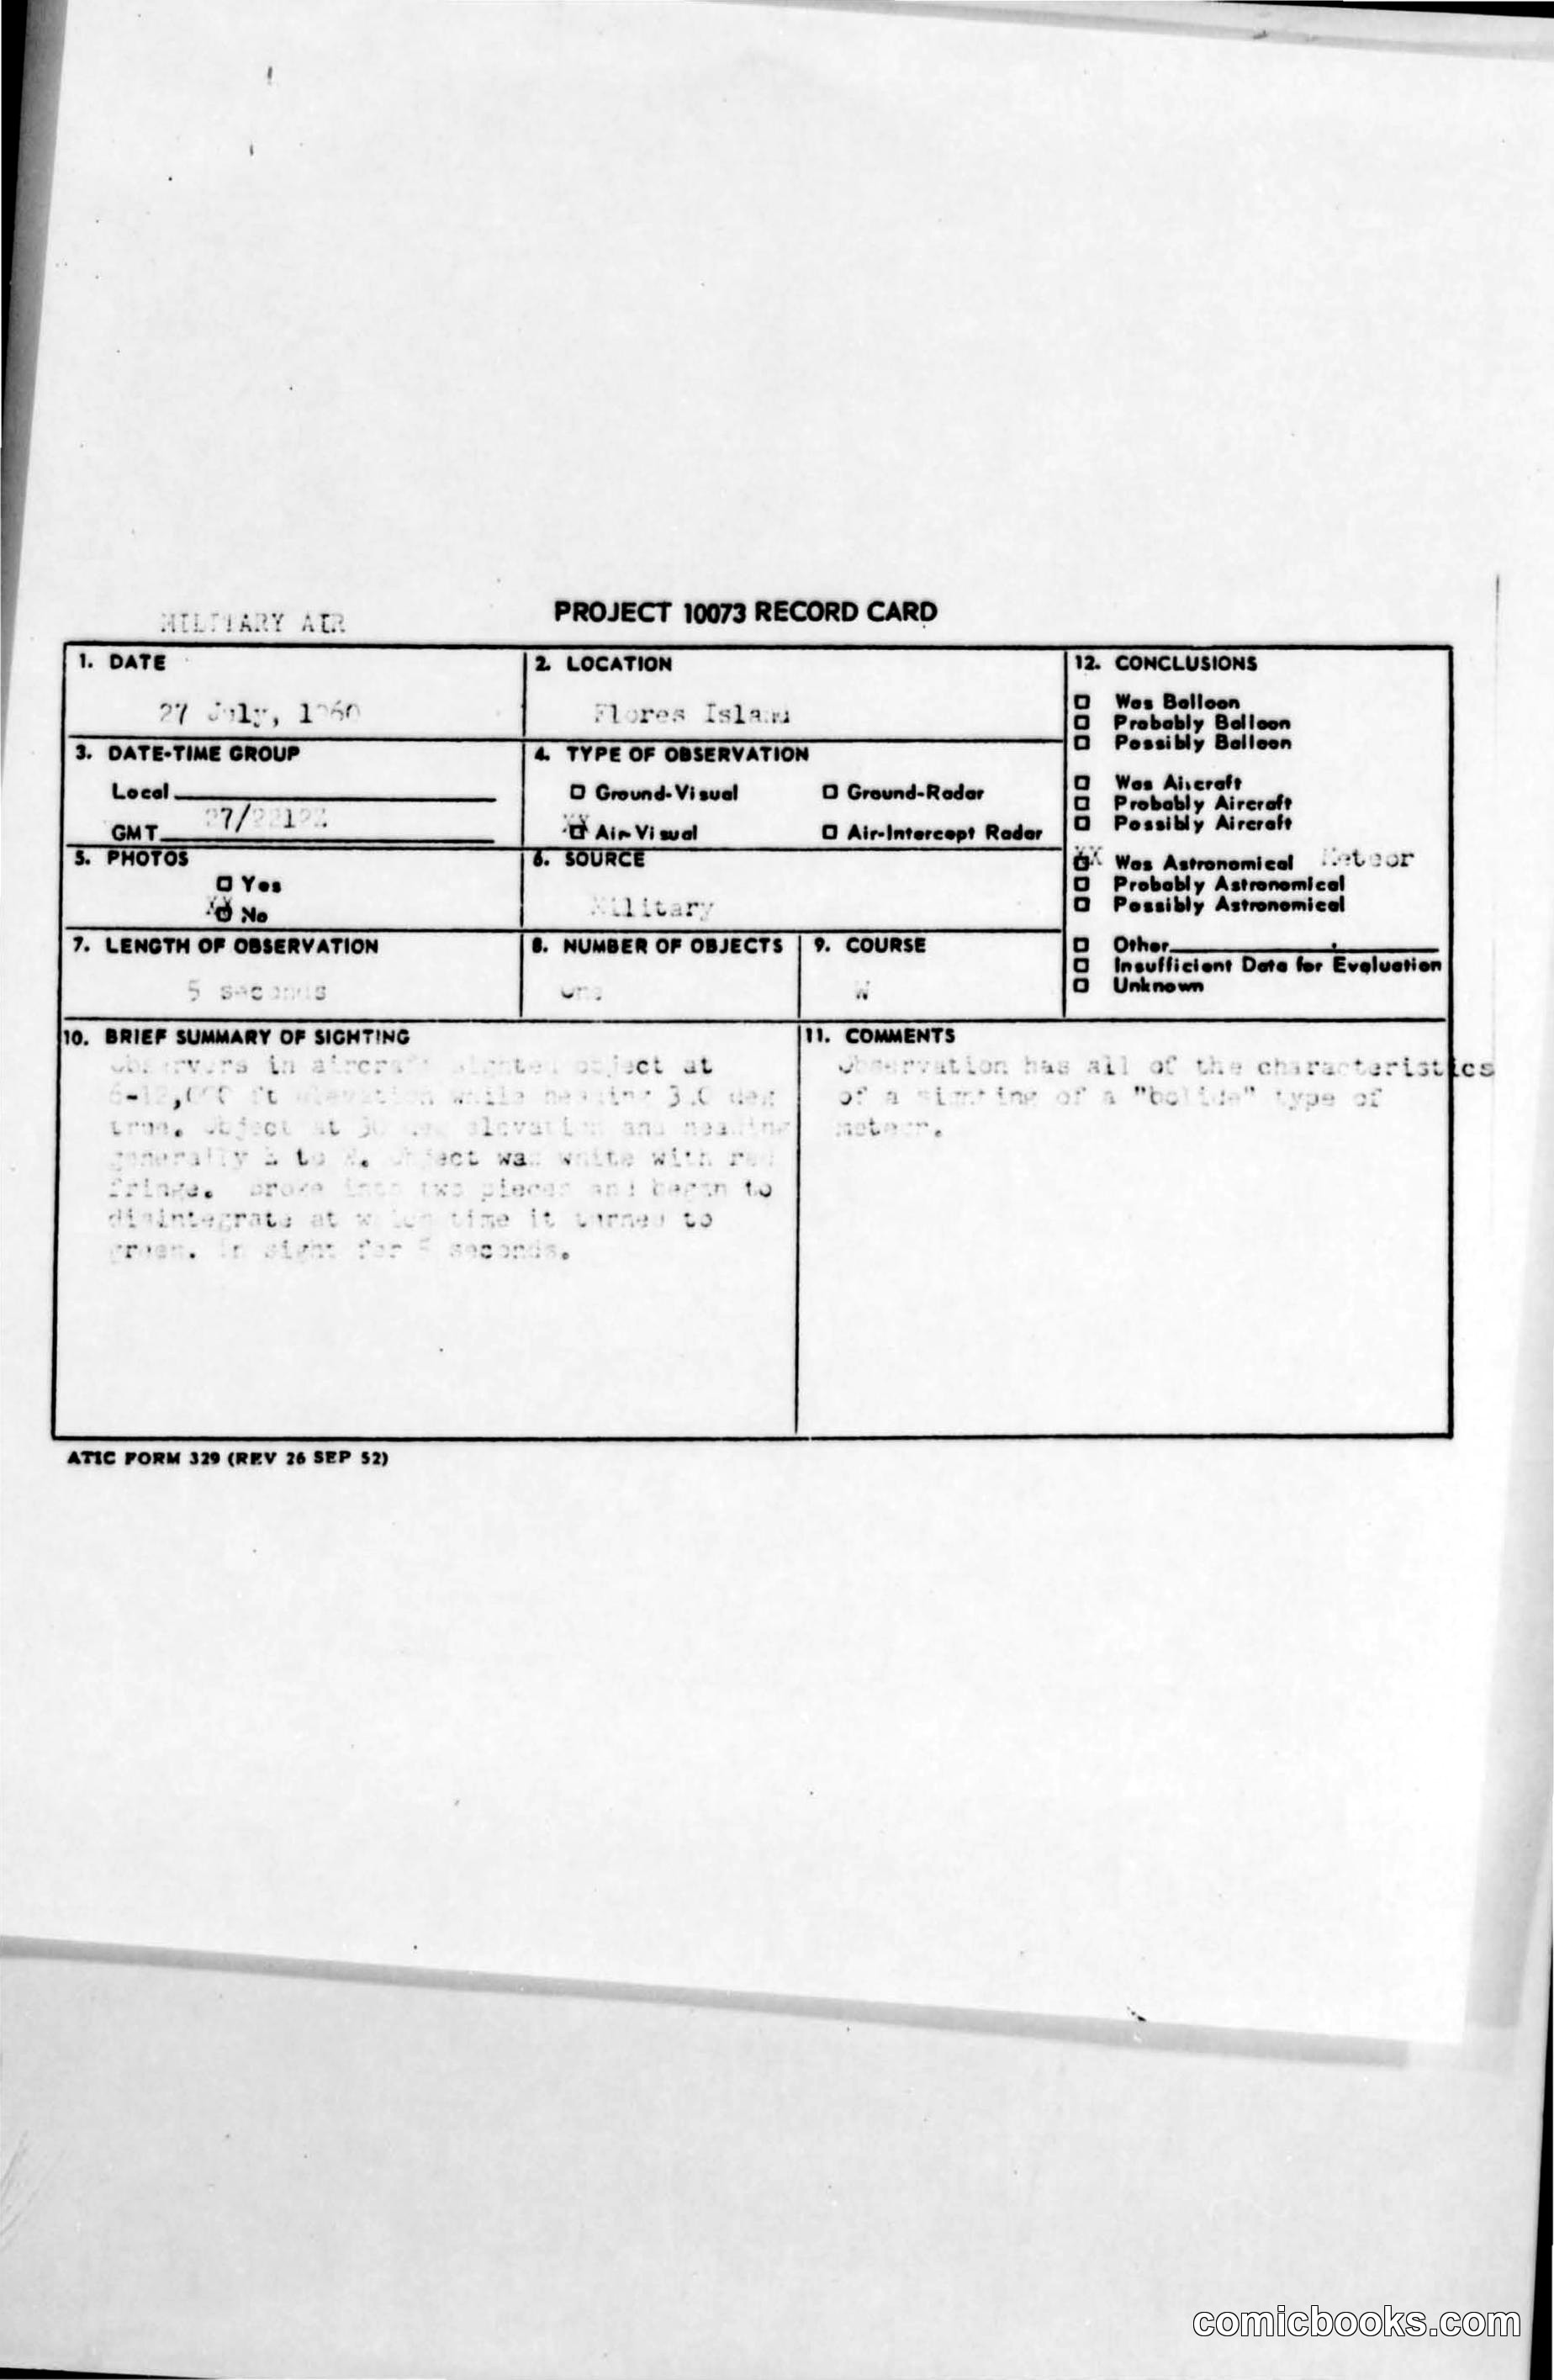 MILITARY AIR
PROJECT 10073 RECORD CARD
1. DATE
27 July, 1960
2. LOCATION
Flores Island
12. CONCLUSIONS
□ Was Balloon
□ Probably Balloon
□ Possibly Balloon
□ Was Aircraft
□ Probably Aircraft
□ Possibly Aircraft
XX Was Astronomical Meteor
□ Probably Astronomical
□ Possibly Astronomical
□ Other
□ Insufficient Data for Evaluation
□ Unknown
3. DATE-TIME GROUP
Local
GMT 27/2212Z
4. TYPE OF OBSERVATION
□ Ground-Visual □ Ground-Radar
XX Air-Visual □ Air-Intercept Radar
5. PHOTOS
□ Yes
XX No
6. SOURCE
Military
7. LENGTH OF OBSERVATION
5 seconds
8. NUMBER OF OBJECTS
One
9. COURSE
W
10. BRIEF SUMMARY OF SIGHTING
Observers in aircraft sighted object at
ft elevation while heading deg
true. Object at 30 deg elevation and heading
generally E to W. Object was white with red
fringe. Broke into two pieces and began to
disintegrate at which time it turned to
green. In sight for 5 seconds.
11. COMMENTS
Observation has all of the characteristics
of a sighting of a "bolide" type of
meteor.
ATIC FORM 329 (REV 26 SEP 52)
comicbooks.com